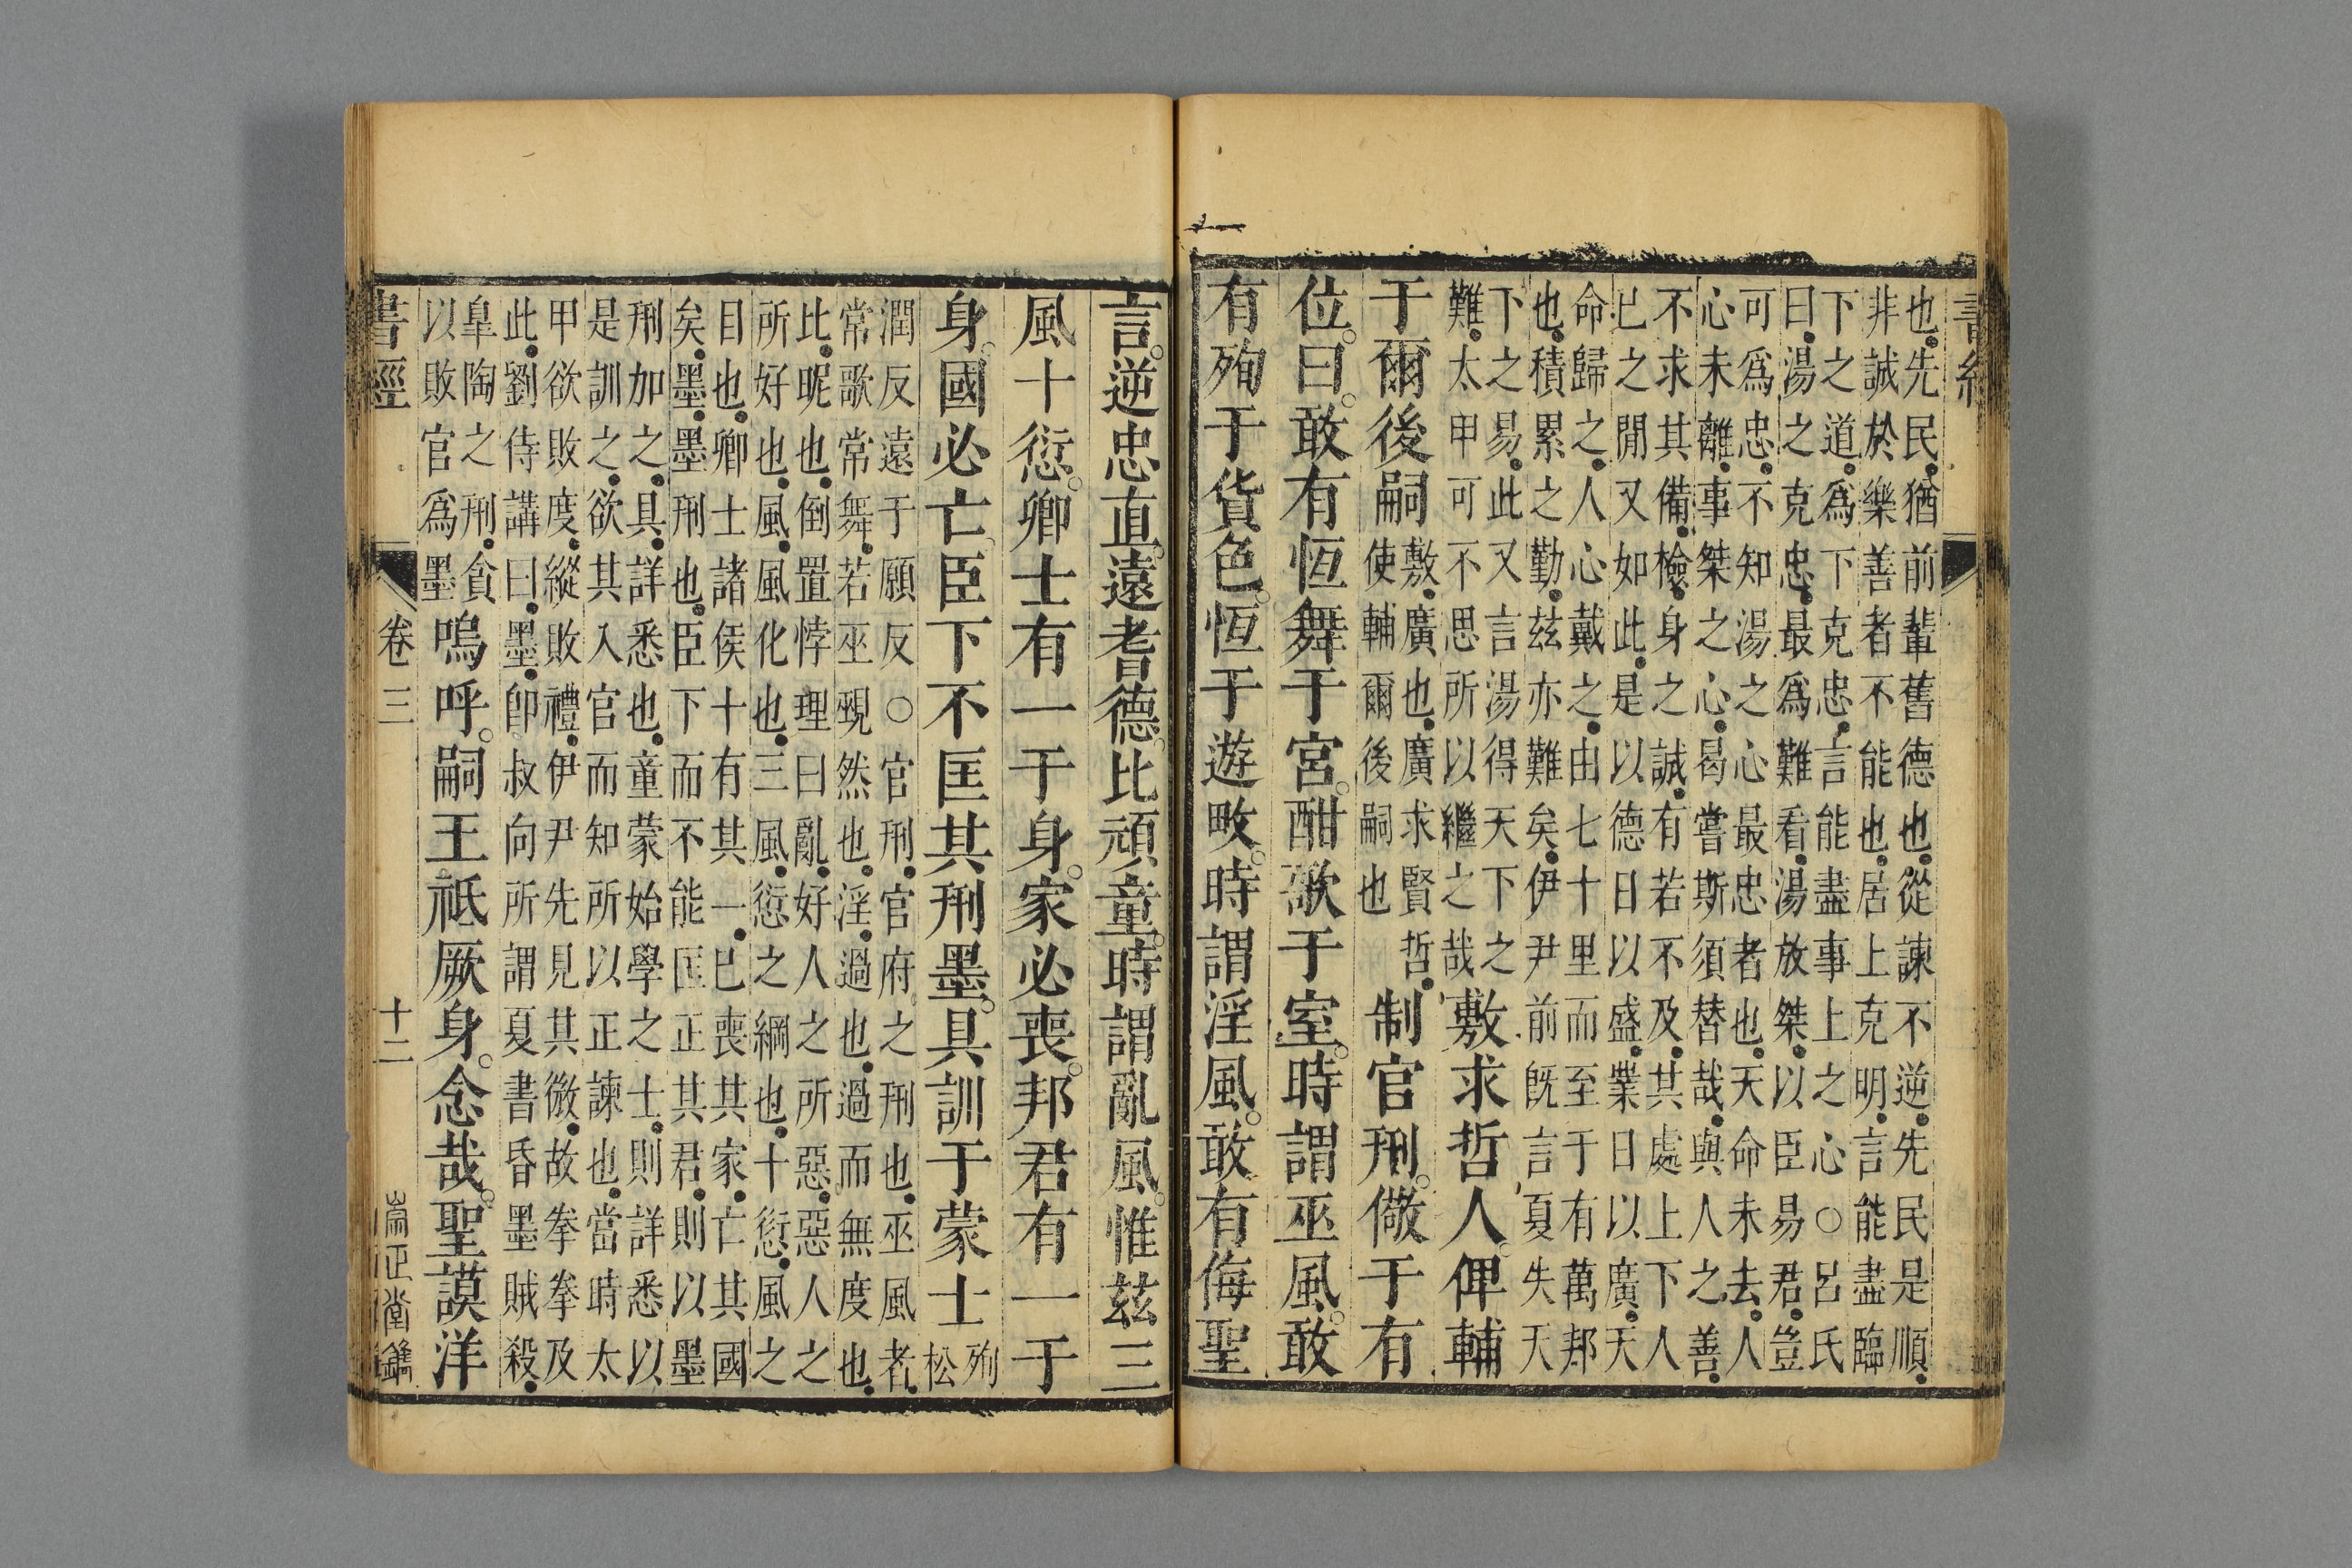 書經
也。先民。猶前輩舊德也。從諫不逆。先民是順。
非誠於樂善者不能也。居上克明。言能盡臨
下之道。爲下克忠。言能盡事上之心○呂氏
曰。湯之克忠。最爲難看。湯放桀。以臣易君。豈
可爲忠。不知湯之心最忠者也。天命未去。人
心未離。事桀之心。曷嘗斯須替哉。與人之善。
不求其備。檢身之誠。有若不及。其處上下人
已之閒又如此。是以德日以盛。業日以廣。天
命歸之。人心戴之。由七十里而至于有萬邦
也。積累之勤。茲亦難矣。伊尹前旣言夏失天
下之易。此又言湯得天下之
難。太甲可不思所以繼之哉
敷求哲人。俾輔
于爾後嗣
敷。廣也。廣求賢哲。
使輔爾後嗣也
制官刑。儆于有
位。曰。敢有恆舞于宮。酣歌于室。時謂巫風。敢
有殉于貨色。恒于遊畋。時謂淫風。敢有侮聖
言。逆忠直。遠耆德。比頑童。時謂亂風。惟兹三
風十愆。卿士有一于身。家必喪。邦君有一于
身。國必亡。臣下不匡其刑墨。具訓于蒙士
殉
松
潤反遠于願反○官刑。官府之刑也。巫風者。
常歌常舞。若巫覡然也。淫。過也。過而無度也。
比。昵也。倒置悖理曰亂。好人之所惡。惡人之
所好也。風。風化也。三風。愆之綱也。十愆。風之
目也。卿士諸侯十有其一。已喪其家。亡其國
矣。墨。墨刑也。臣下而不能匡正其君。則以墨
刑加之。具。詳悉也。童蒙始學之士。則詳悉以
是訓之。欲其入官而知所以正諫也。當時太
甲欲敗度。縱敗禮。伊尹先見其微。故拳拳及
此。劉侍講曰。墨。卽叔向所謂夏書昏墨賊殺。
臯陶之刑。貪
以敗官爲墨
嗚呼。嗣王祗厥身。念哉。聖謨洋
書經
卷三
十二